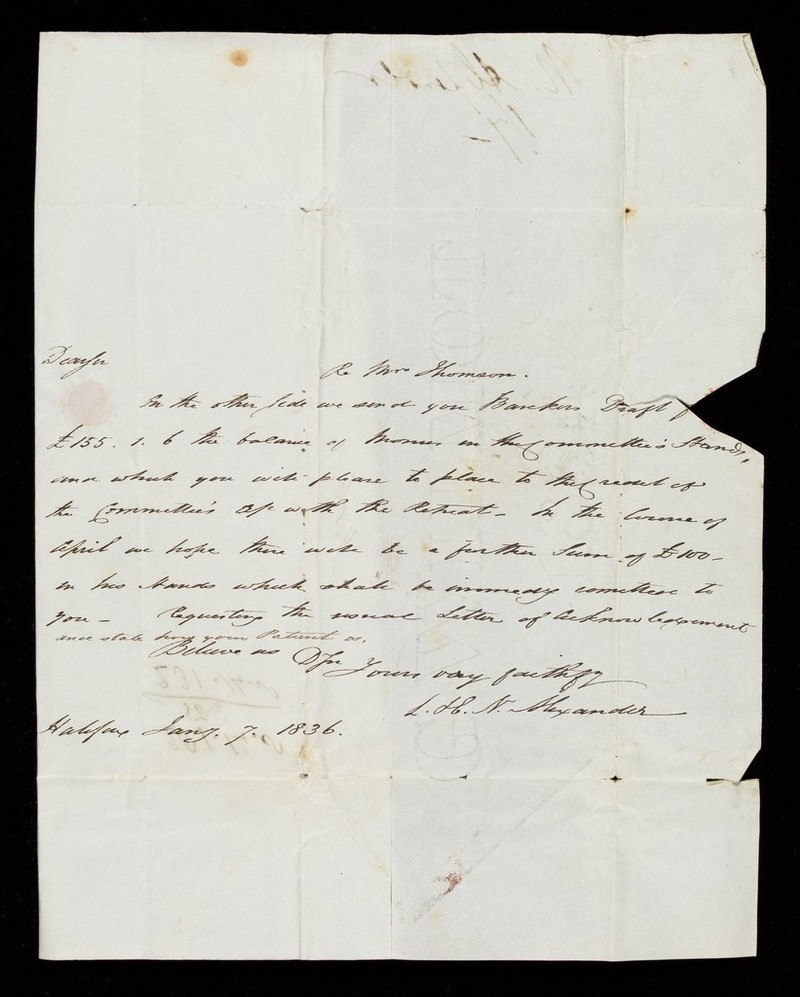 Dear Sir
Re Mrs Thomson.
On the other side we send you Bankers Draft for
£155. 1. 6 the balance of Monies in the Committee's Hands,
and which you will please to place to the Credit of
the Committee's a/c with the Retreat - In the Course of
April we hope there will be a further Sum of £100 -
in his Hands which shall be immedy remitted to
you - Requesting the usual Letter of Acknowledgement
and state how your Patient is.
Believe us D Sir
Yours very faithfy
L. & E. N. Alexander
Halifax Jany. 7. 1836.